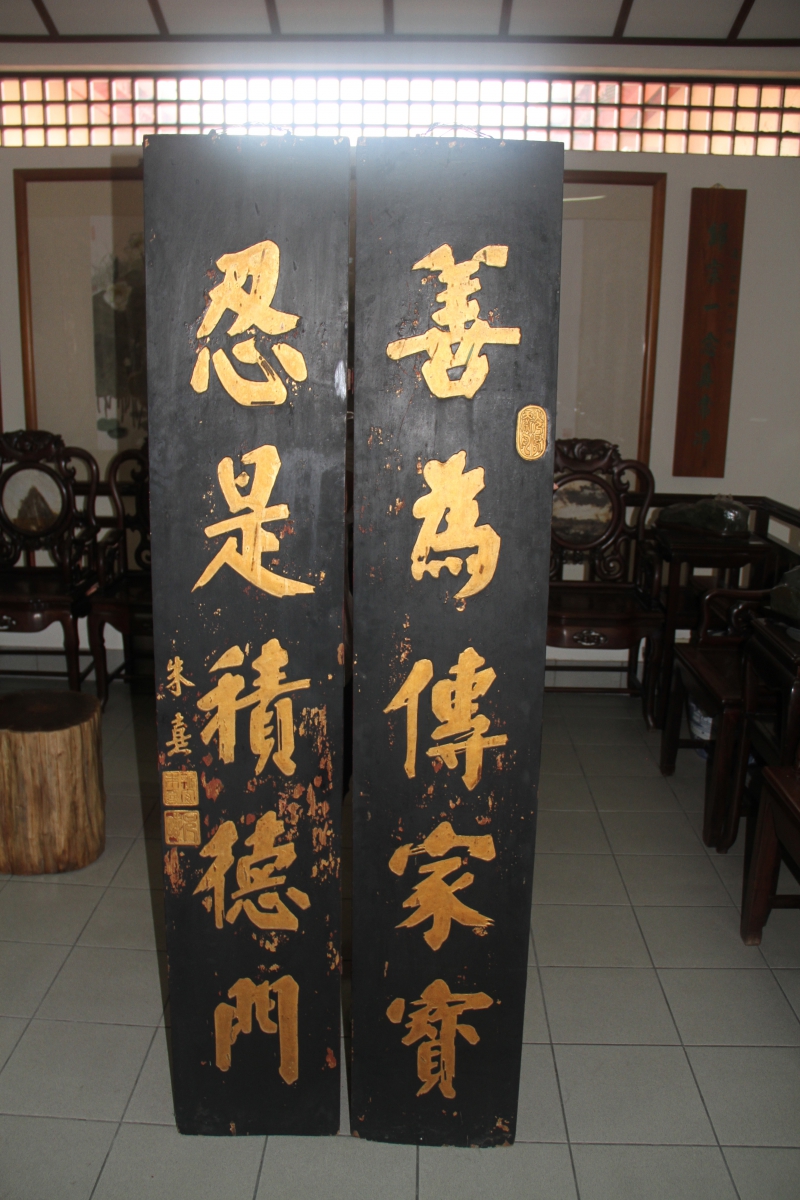 善為傳家寶
忍是積德門
朱熹